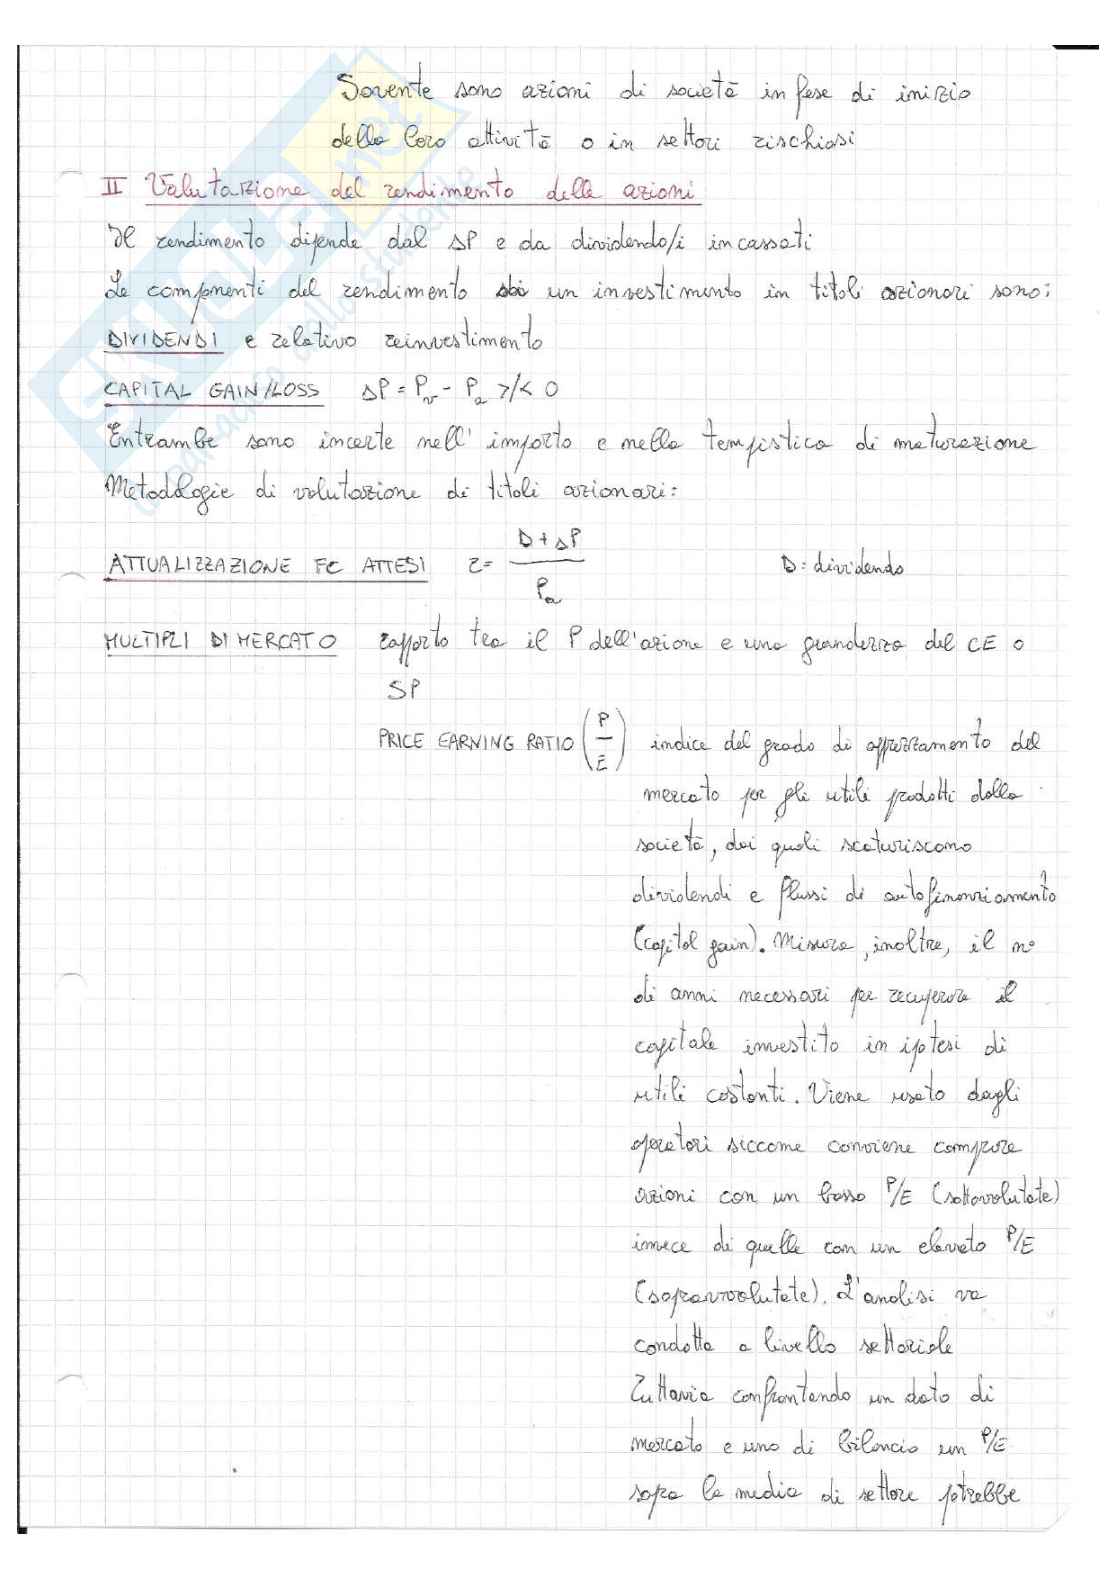 Sovente sono azioni di società in fase di inizio
della loro attività o in settori rischiosi
II Valutazione del rendimento delle azioni
Il rendimento dipende dal ΔP e da dividendo/i incassati
Le componenti del rendimento di un investimento in titoli azionari sono:
DIVIDENDI e relativo reinvestimento
CAPITAL GAIN/LOSS ΔP = Pv - Pa >/< 0
Entrambe sono incerte nell'importo e nella tempistica di maturazione
Metodologie di valutazione di titoli azionari:
ATTUALIZZAZIONE FC ATTESI r = (D + ΔP) / Pa D = dividendo
MULTIPLI DI MERCATO rapporto tra il P dell'azione e una grandezza del CE o
SP
PRICE EARNING RATIO (P/E) indice del grado di apprezzamento del
mercato per gli utili prodotti dalla
società, dai quali scaturiscono
dividendi e flussi di autofinanziamento
(capital gain). Misura, inoltre, il n°
di anni necessari per recuperare il
capitale investito in ipotesi di
utili costanti. Viene usato dagli
operatori siccome conviene comprare
azioni con un basso P/E (sottovalutate)
invece di quelle con un elevato P/E
(sopravvalutate). L'analisi va
condotta a livello settoriale
Tuttavia confrontando un dato di
mercato e uno di bilancio un P/E
sopra la media di settore potrebbe